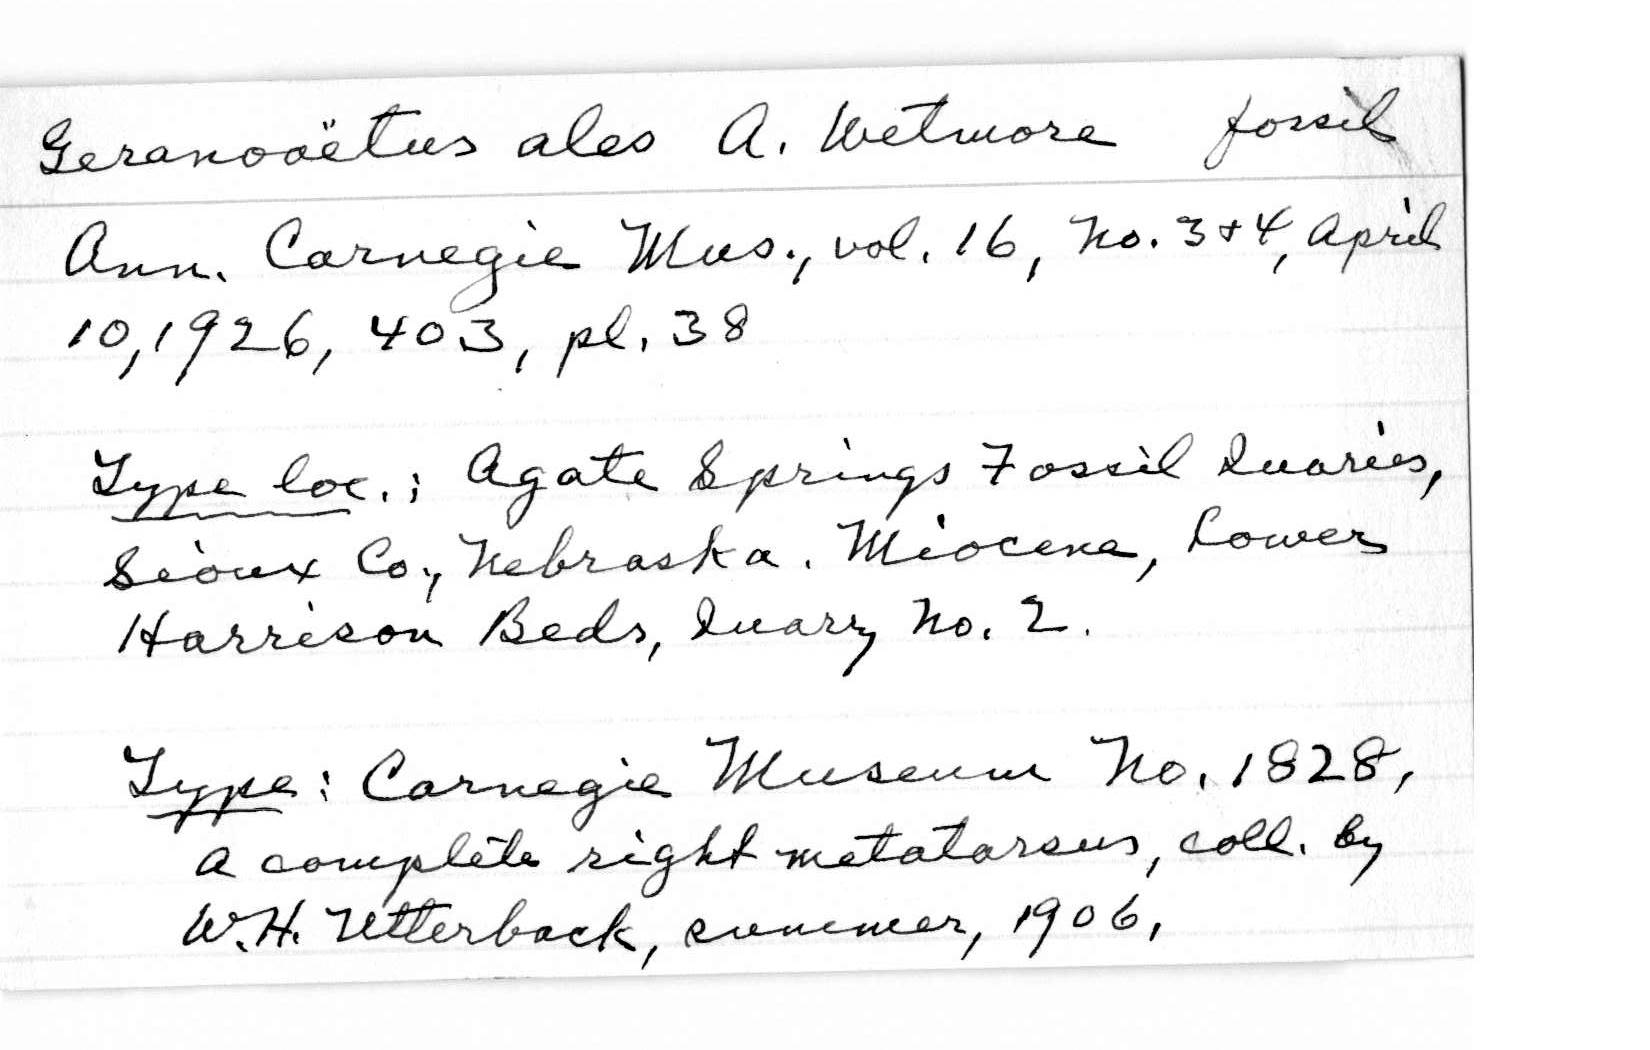 Geranoaëtus ales A. Wetmore fossil
Ann. Carnegie Mus., vol. 16, No. 3+4, April
10, 1926, 403, pl. 38
Type loc.: Agate Springs Fossil Quaries,
Sioux Co., Nebraska. Miocene, Lower
Harrison Beds, Quarry No. 2.
Type: Carnegie Museum No. 1828,
a complete right metatarsus, coll. by
W.H. Utterback, summer, 1906.